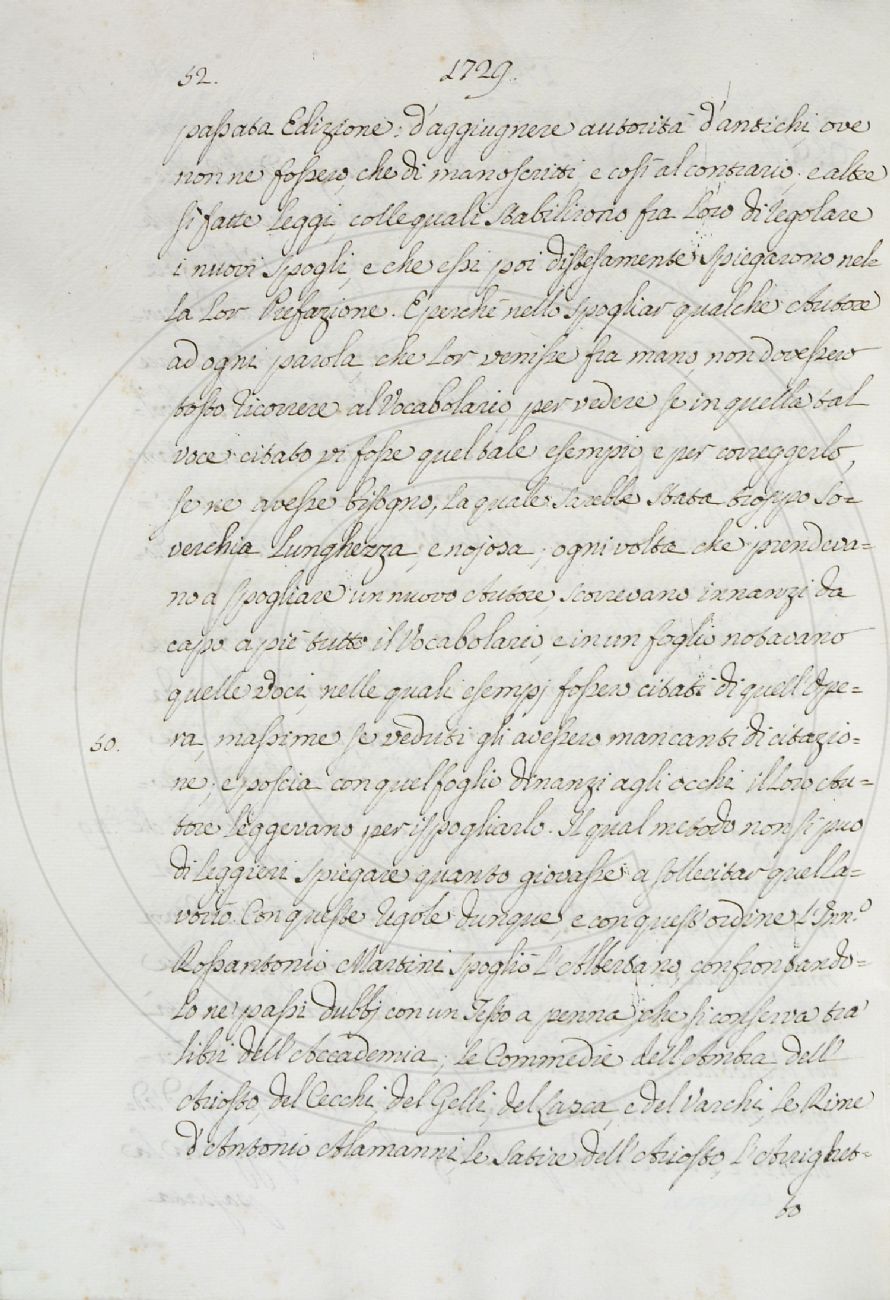 52. 1729.
passata Edizione: d'aggiugnere autorità d'antichi, ove
non ne fossero, che di manoscritti e così al contrario; e altre
sì fatte Leggi, colle quali stabilirono fra Loro di regolare
i nuovi spogli, e che essi poi distesamente spiegarono nel=
La Lor Prefazione. E perchè nello spogliar qualche Autore
ad ogni parola, che Lor venisse fra mano, non dovessero
tosto ricorrere al Vocabolario per vedere se in quella tal
voce citato vi fosse quel tale esempio e per correggerlo,
se ne avesse bisogno, La quale sarebbe stata troppo so=
verchia Lunghezza, e nojosa; ogni volta che prendeva=
no a spogliare un nuovo Autore scorrevano innanzi da
capo a piè tutto il Vocabolario, e in un foglio notavano
quelle voci, nelle quali esempj fossero citati di quell'Ope=
60. ra, massime se veduti gli avessero mancanti di citazio=
ne; e poscia con quel foglio dinanzi agli occhi il Loro Au=
tore Leggevano per ispogliarlo. Il qual metodo non si può
di Leggieri spiegare quanto giovasse a sollecitar quel La=
voro. Con queste regole dunque, e con quest'ordine L'Inn.º
Rossantonio Martini spogliò L'Albertano, confrontando=
Lo ne' passi dubbj con un Testo a penna, che si conserva tra'
libri dell'Accademia; Le Commedie dell'Ambra, dell'
Ariosto, del Cecchi, del Gelli, del Lasca, e del Varchi, Le Rime
d'Antonio Alamanni, Le Satire dell'Ariosto, L'Arrighet=
to